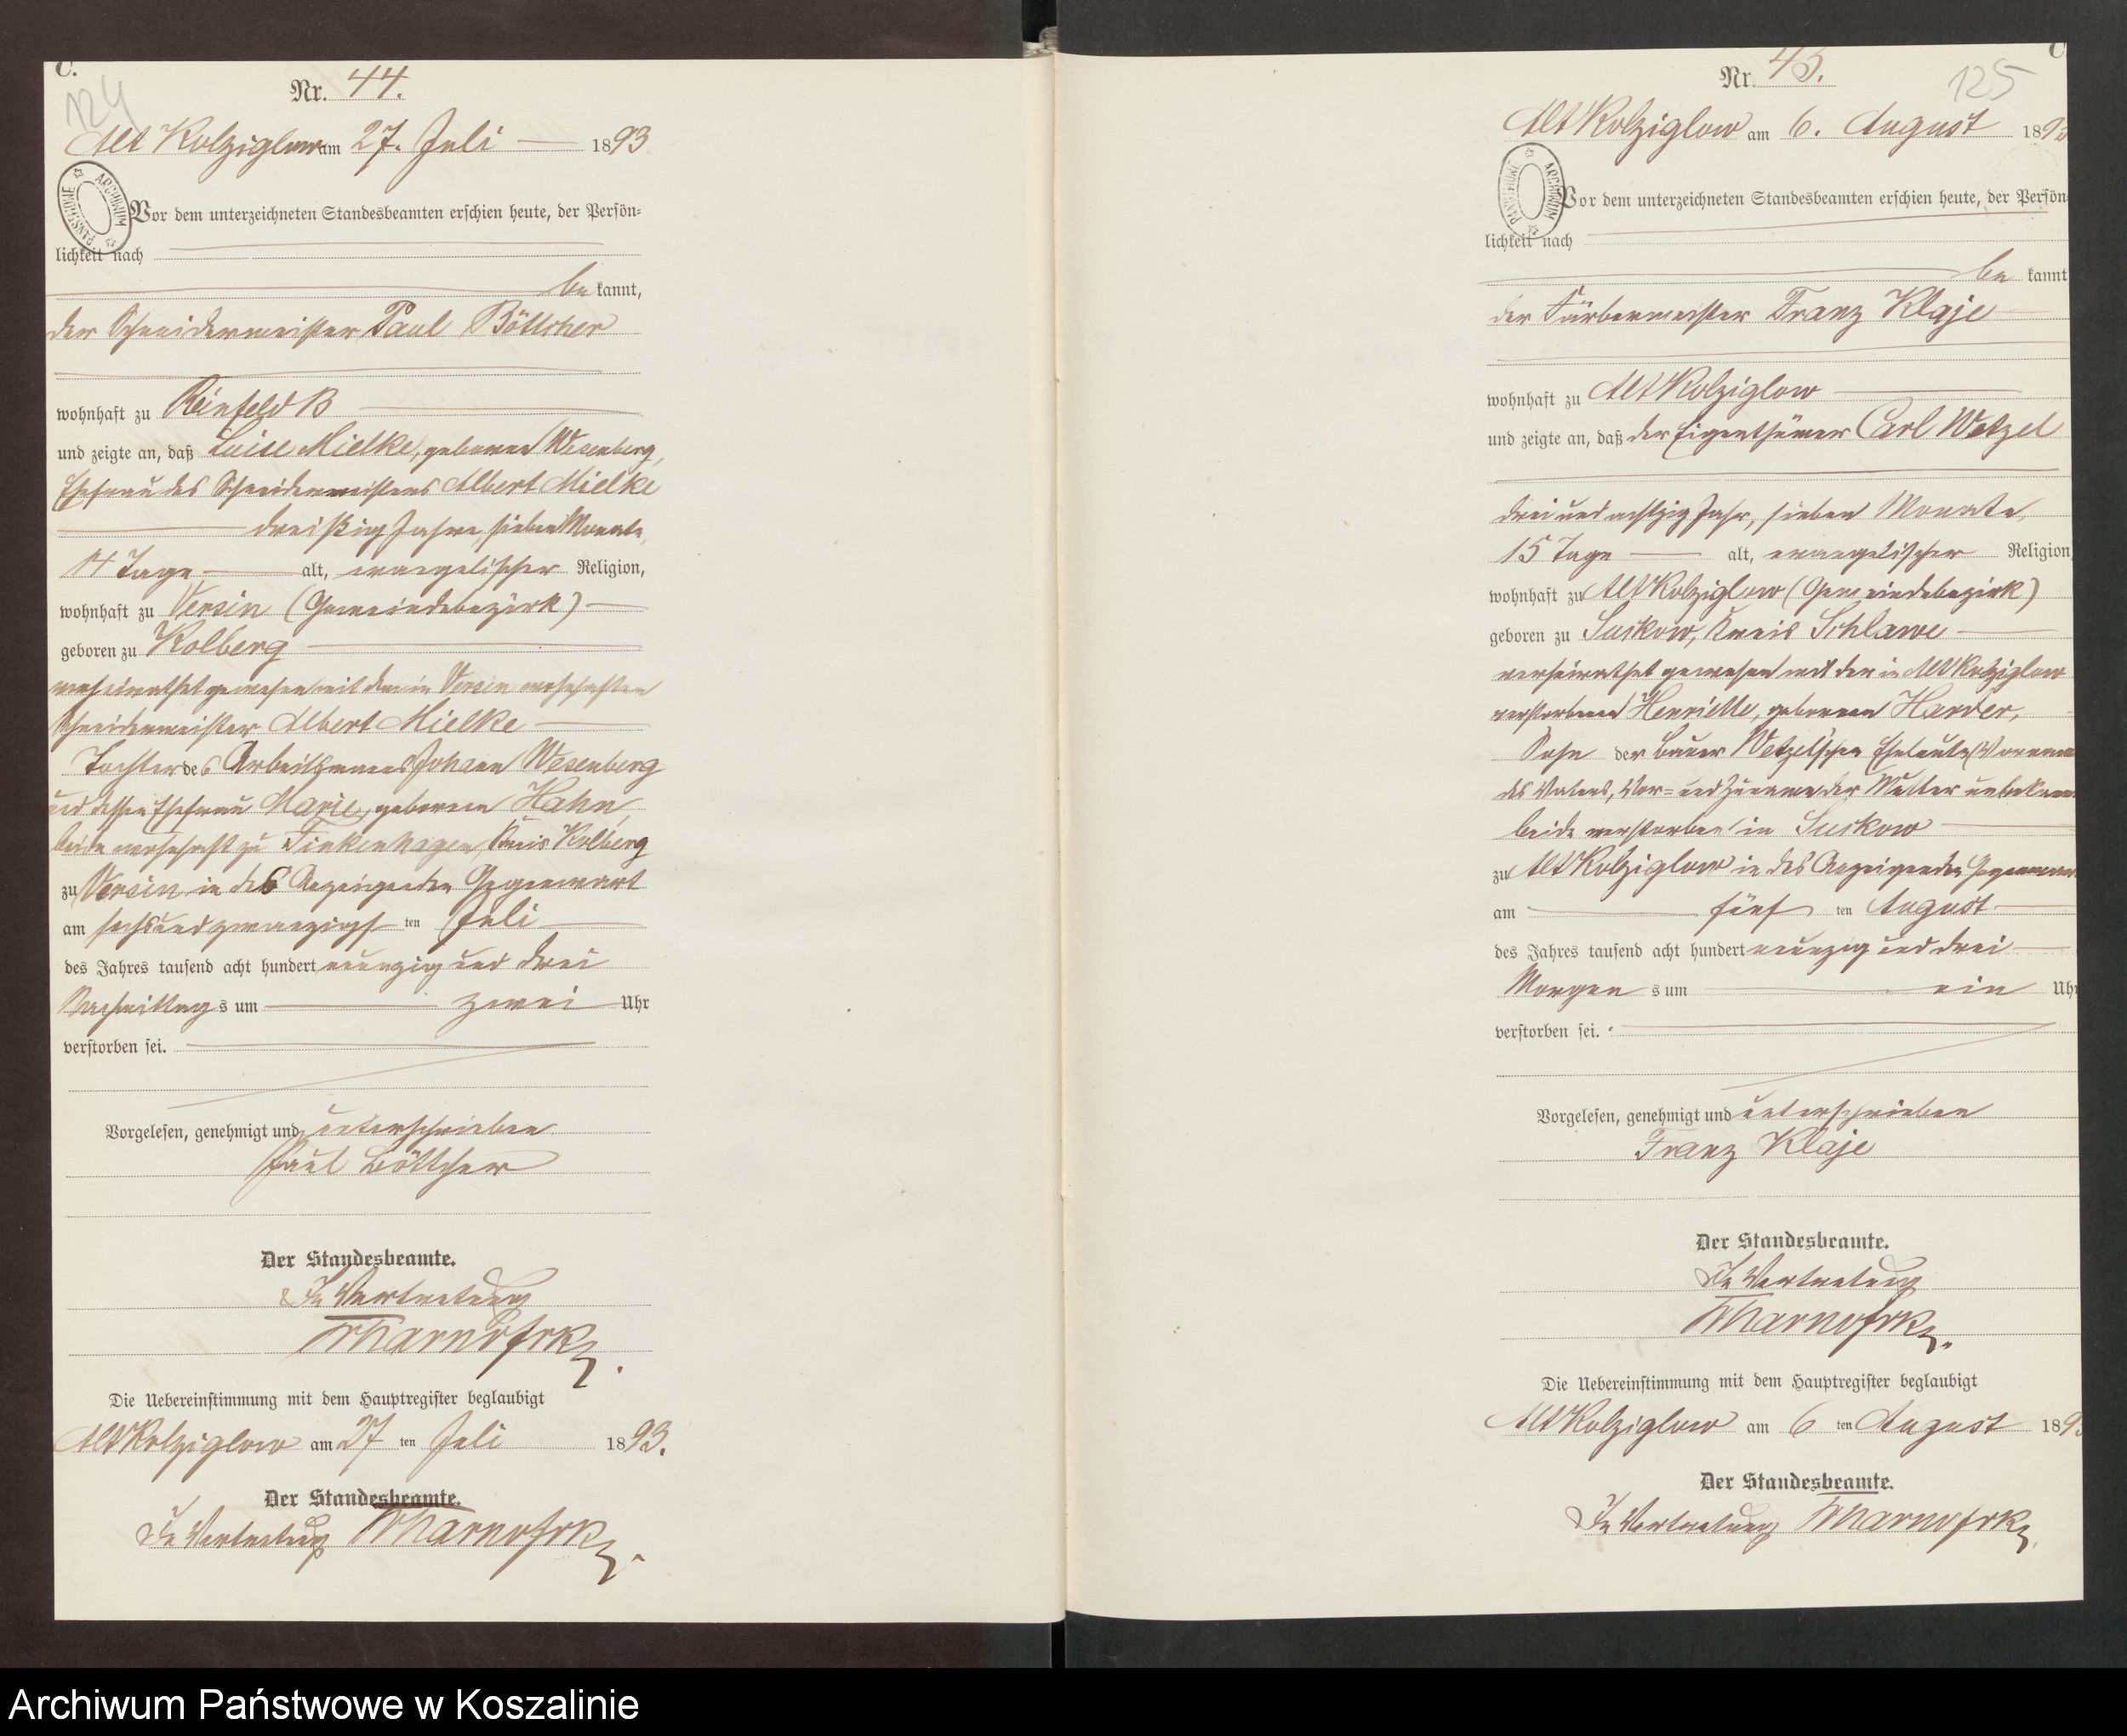 C.
124
Nr. 44.
Alt Kolziglow am 27. Juli 1893
ARCHIWUM PAŃSTWOWE
Vor dem unterzeichneten Standesbeamten erschien heute, der Persön=
lichkeit nach
be kannt,
der Schneidermeister Paul Böttcher
wohnhaft zu Reinfeld B
und zeigte an, daß Luise Mielke, geborene Wesenberg,
Ehefrau des Schneidermeisters Albert Mielke
dreißig Jahre, sieben Monate,
14 Tage alt, evangelischer Religion,
wohnhaft zu Versin (Gemeindebezirk)
geboren zu Kolberg
verheirathet gewesen mit dem in Versin wohnhaften
Schneidermeister Albert Mielke
Tochter des Arbeitsmanns Johann Wesenberg
und dessen Ehefrau Marie, geborenen Hahn,
beide wohnhaft zu Finkenhagen, Kreis Kolberg
zu Versin in des Anzeigenden Gegenwart
am sechsundzwanzigsten Juli
des Jahres tausend acht hundert neunzig und drei
Nachmittags um zwei Uhr
verstorben sei.
Vorgelesen, genehmigt und unterschrieben
Paul Böttcher
Der Standesbeamte.
In Vertretung
Die Uebereinstimmung mit dem Hauptregister beglaubigt
Alt Kolziglow am 27 ten Juli 1893.
Der Standesbeamte.
In Vertretung
C
Nr. 45.
125
Alt Kolziglow am 6. August 1893
ARCHIWUM PAŃSTWOWE
Vor dem unterzeichneten Standesbeamten erschien heute, der Persön=
lichkeit nach
be kannt
der Färbermeister Franz Klaje
wohnhaft zu Alt Kolziglow
und zeigte an, daß der Eigenthümer Carl Wetzel
drei und achtzig Jahr, sieben Monate,
15 Tage alt, evangelischer Religion
wohnhaft zu Alt Kolziglow (Gemeindebezirk)
geboren zu Suckow, Kreis Schlawe
verheirathet gewesen mit der in Alt Kolziglow
verstorbenen Henriette, geborenen Harder,
Sohn der Bauer Wetzel'schen Eheleute (Vorname
des Vaters, Vor= und Zuname der Mutter unbekannt
beide verstorben in Suckow
zu Alt Kolziglow in des Anzeigenden Gegenwart
am fünf ten August
des Jahres tausend acht hundert neunzig und drei
Morgen s um ein Uhr
verstorben sei.
Vorgelesen, genehmigt und unterschrieben
Franz Klaje
Der Standesbeamte.
In Vertretung
Die Uebereinstimmung mit dem Hauptregister beglaubigt
Alt Kolziglow am 6 ten August 189
Der Standesbeamte.
In Vertretung
Archiwum Państwowe w Koszalinie